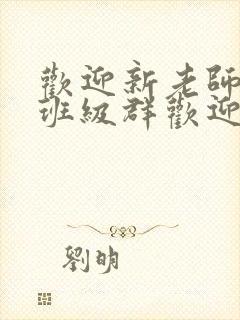 歡迎新老師
班級群歡迎
劉明